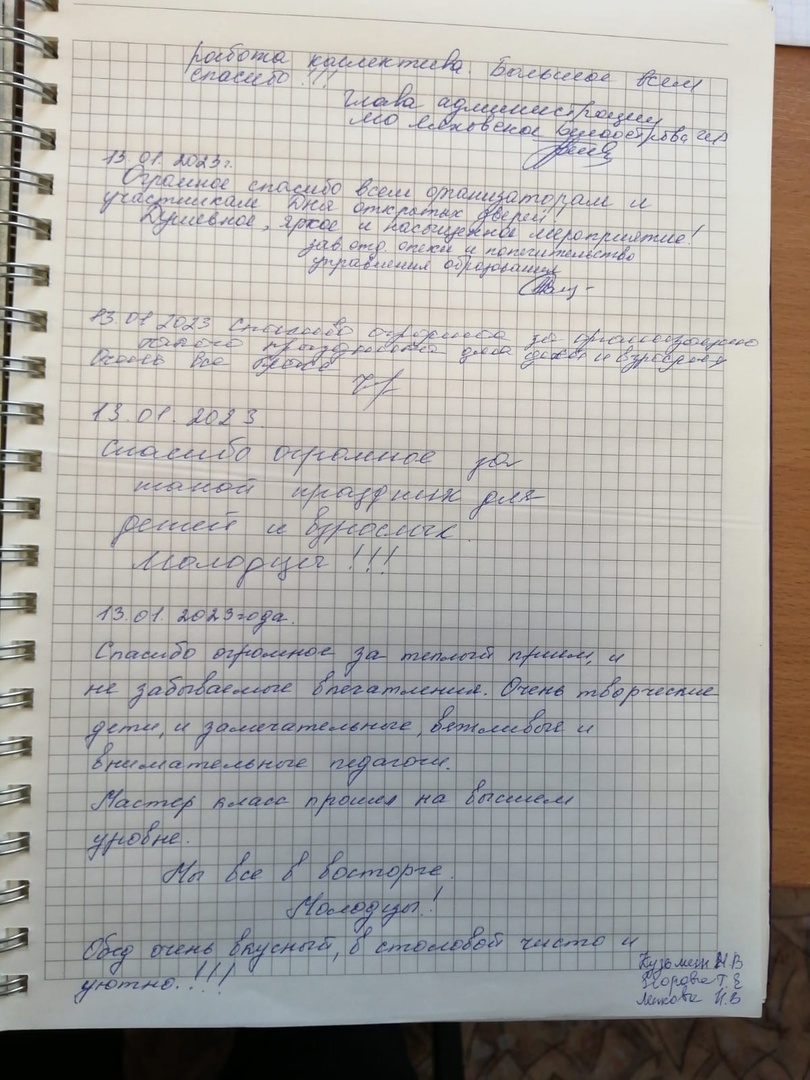 работа коллектива. Большое всем
спасибо!!!
Глава администрации
МО
13.01.2023г.
Огромное спасибо всем организаторам и
участникам Дня открытых дверей!
Душевное, яркое и насыщенное мероприятие!
зав.отд опеки и попечительства
управления образования
13.01 2023 Спасибо огромное за организацию
такого праздника для детей и взрослых
Очень все
13.01.2023.
Спасибо огромное за
такой праздник для
детей и взрослых.
Молодцы!!!
13.01.2023года.
Спасибо огромное за теплый прием, и
не забываемые впечатления. Очень творческие
дети, и замечательные, вежливые и
внимательные педагоги.
Мастер класс прошел на высшем
уровне.
Мы все в восторге.
Молодцы!
Обед очень вкусный, в столовой чисто и
уютно.!!!
Кузьмин Н В
Т Е
Н.В